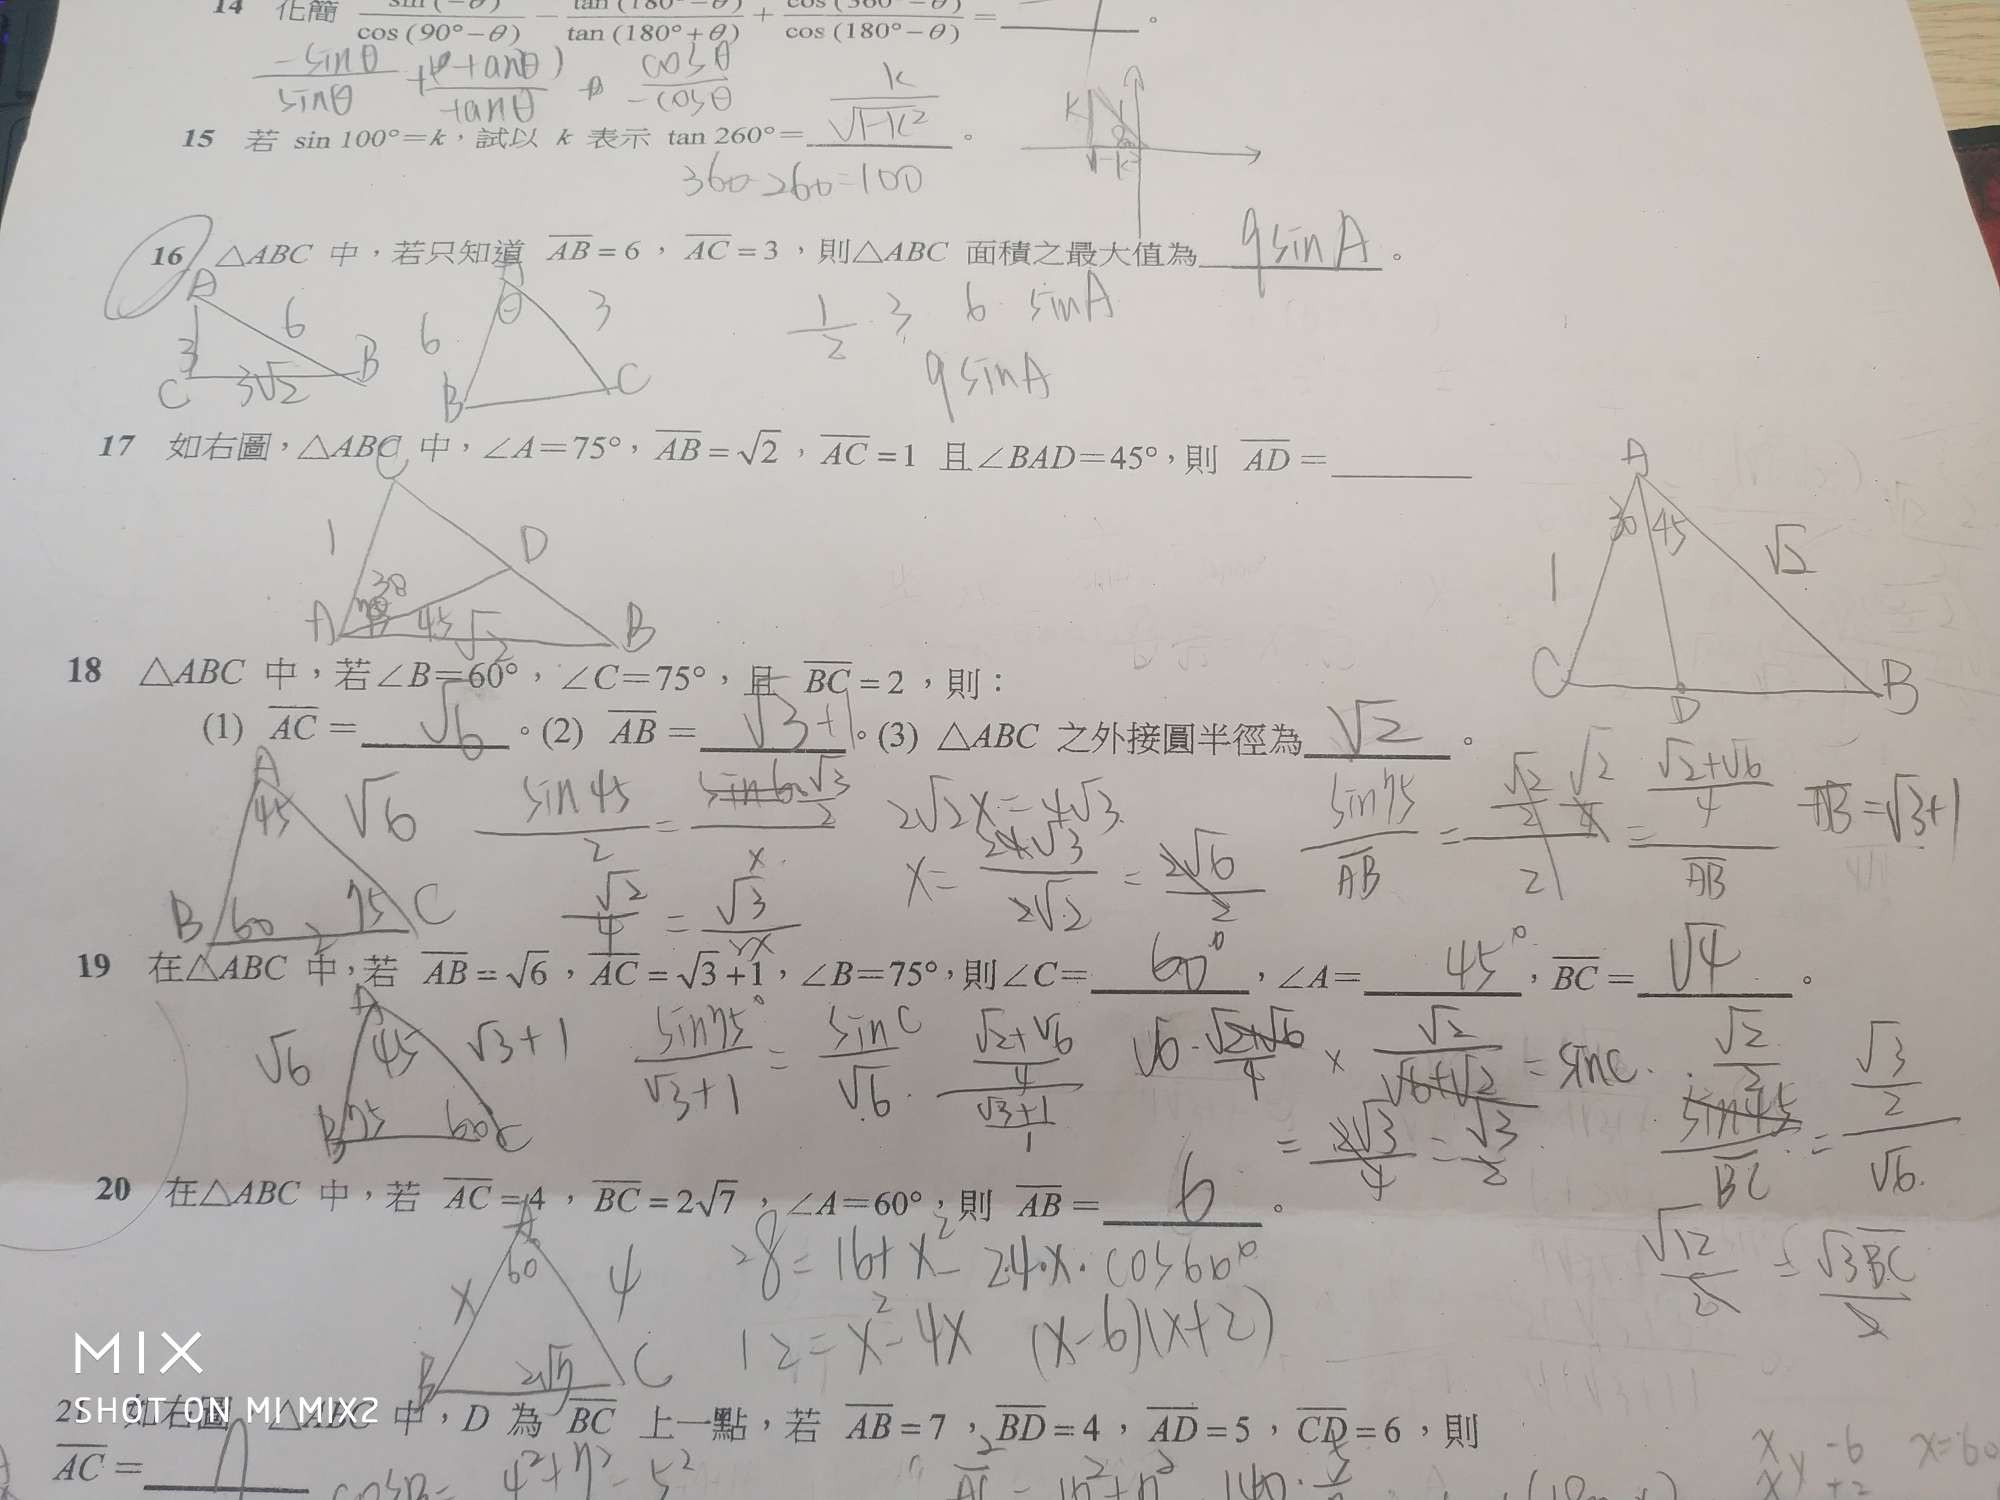 14 化簡 sin(−θ)/cos(90°−θ) − tan(180°−θ)/tan(180°+θ) + cos(360°−θ)/cos(180°−θ) = 。
−sinθ/sinθ + (+tanθ)/tanθ + cosθ/−cosθ
15 若 sin 100°=k，試以 k 表示 tan 260°= k/√1−k² 。
360-260=100
K
16 △ABC 中，若只知道 AB=6，AC=3，則△ABC 面積之最大值為 9sinA 。
A 6 3 C 3√2 B
A θ 6 3 B C
1/2 · 3 6 sinA
9sinA
17 如右圖，△ABC 中，∠A=75°，AB=√2，AC=1 且∠BAD=45°，則 AD=
C 1 D 30 A 45 √2 B
A 30 45 √2 1 C D B
18 △ABC 中，若∠B=60°，∠C=75°，且 BC=2，則：
(1) AC= √6 。(2) AB= √3+1 。(3) △ABC 之外接圓半徑為 √2 。
A 45 √6 B 60 2 75 C
sin45/2 = √3/2/x
2√2x=4√3
√2/4 = √3/2x
x= 4√3/2√2 = 2√6/2
sin75/AB = √2/2/2 = √2+√6/4/AB
AB=√3+1
19 在△ABC 中，若 AB=√6，AC=√3+1，∠B=75°，則∠C= 60° ，∠A= 45° ，BC= √4 。
A √6 45 √3+1 B 75 60 C
sin75°/√3+1 = sinC/√6
√2+√6/4/√3+1/1
√6 · √2+√6/4 × √2/√6+√2 = sinC
= 2√3/4 = √3/2
√2/2 sin45/BC = √3/2/√6
√12/2 = √3BC/2
20 在△ABC 中，若 AC=4，BC=2√7，∠A=60°，則 AB= 6 。
A 60 x 4 B 2√7 C
28=16+x²−2·4·x·cos60°
12=x²−4x (x−6)(x+2)
21 如右圖，△ABC 中，D 為 BC 上一點，若 AB=7，BD=4，AD=5，CD=6，則
AC= 7
cosB= 4²+7²−5²
x −6
x +2
MIX
SHOT ON MI MIX2